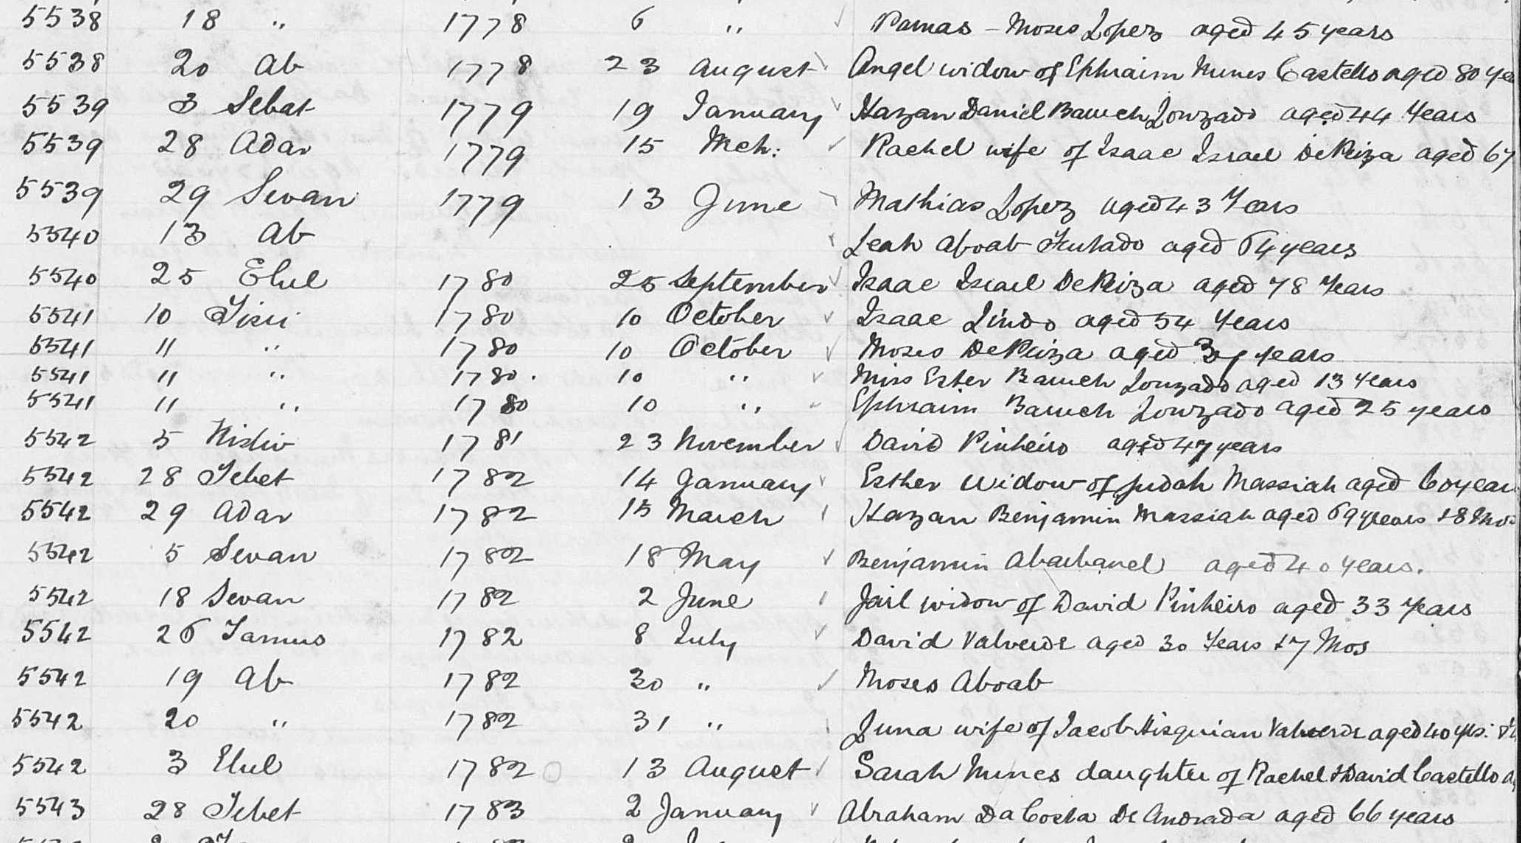 5538 18 " 1778 6 " Parnas - Moses Lopez aged 45 years
5538 20 Ab 1778 23 August Angel widow of Ephraim Nunes Castello aged 80 yea
5539 3 Sebat 1779 19 January Hazan Daniel Baruch Louzado aged 44 Years
5539 28 Adar 1779 15 Mch: Rachel wife of Isaac Israel DePeiza aged 67
5539 29 Sevan 1779 13 June Mathias Lopez aged 43 Years
5540 13 Ab Leah Aboab Furtado aged 64 years
5540 25 Elul 1780 25 September Isaac Israel DePeiza aged 78 Years
5541 10 Tisri 1780 10 October Isaac Lindo aged 54 Years
5541 11 " 1780 10 October Moses DePeiza aged years
5541 11 " 1780. 10 " Miss Ester Baruch Louzado aged 13 Years
5541 11 " 1780 10 " Ephraim Baruch Louzado aged 25 years
5542 5 Kislev 1781 23 November David Pinheiro aged 47 years
5542 28 Tebet 1782 14 January Esther widow of Judah Massiah aged 60 years
5542 29 Adar 1782 15 March Hazan Benjamin Massiah aged 69 years + 8 Mos
5542 5 Sevan 1782 18 May Benjamin Abarbanel aged 40 years.
5542 18 Sevan 1782 2 June Jail widow of David Pinheiro aged 33 Years
5542 26 Tamus 1782 8 July David Valverde aged 30 Years + 7 Mos
5542 19 Ab 1782 30 " Moses Aboab
5542 20 " 1782 31 " Luna wife of Jacob Hisquian Valverde aged 40 yrs. +
5542 3 Elul 1782 13 August Sarah Nunes daughter of Rachel + David Castello a
5543 28 Tebet 1783 2 January Abraham DaCosta De Andrada aged 66 years